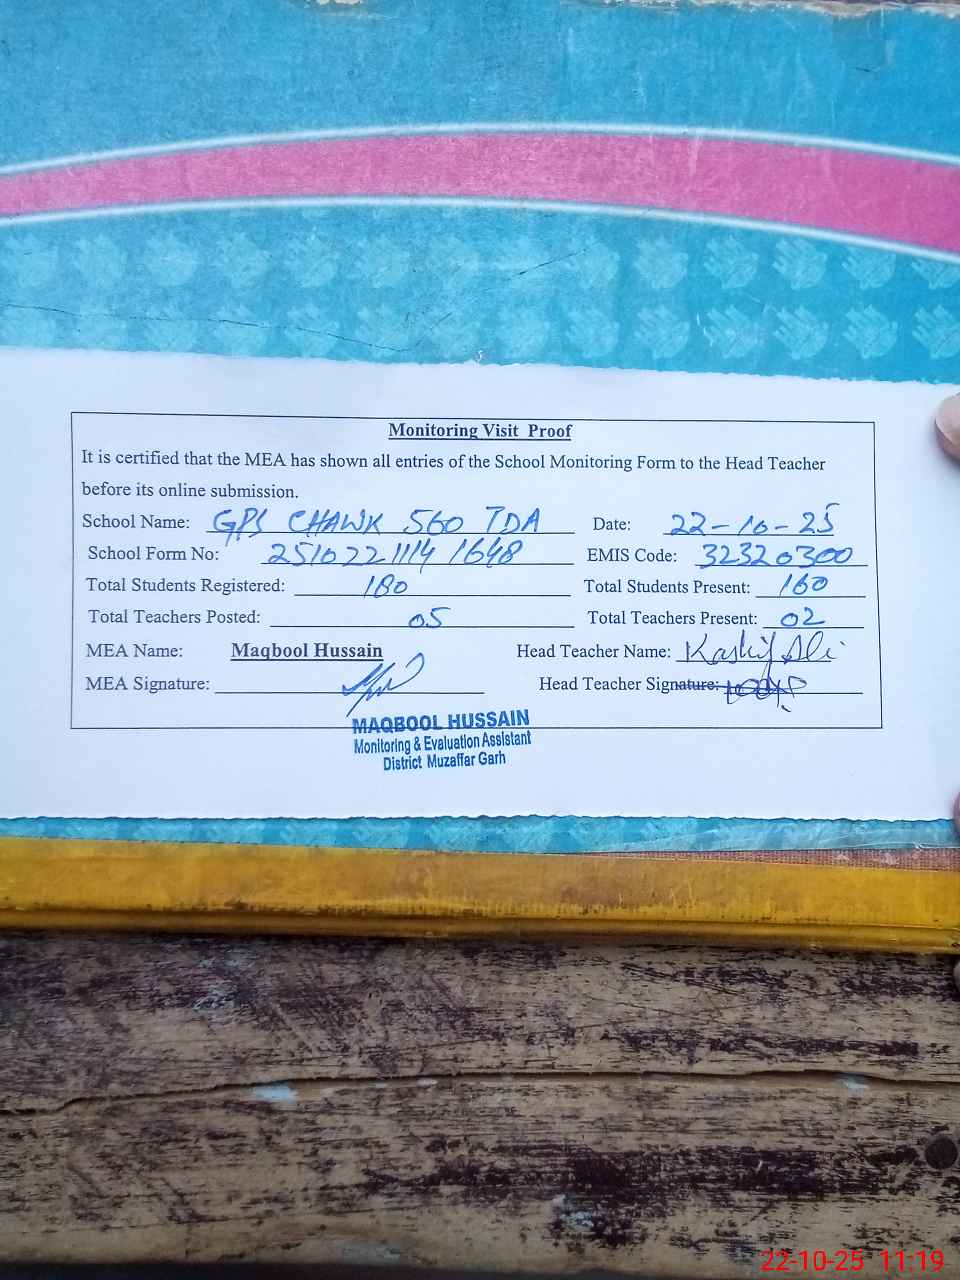 Monitoring Visit Proof
It is certified that the MEA has shown all entries of the School Monitoring Form to the Head Teacher
before its online submission.
School Name: GPS CHAWK 560 TDA Date: 22-10-25
School Form No: 2510221114 1648 EMIS Code: 32320300
Total Students Registered: 180 Total Students Present: 160
Total Teachers Posted: 05 Total Teachers Present: 02
MEA Name: Maqbool Hussain Head Teacher Name: Kashif Ali
MEA Signature: Head Teacher Signature:
MAQBOOL HUSSAIN
Monitoring & Evaluation Assistant
District Muzaffar Garh
22-10-25 11:19